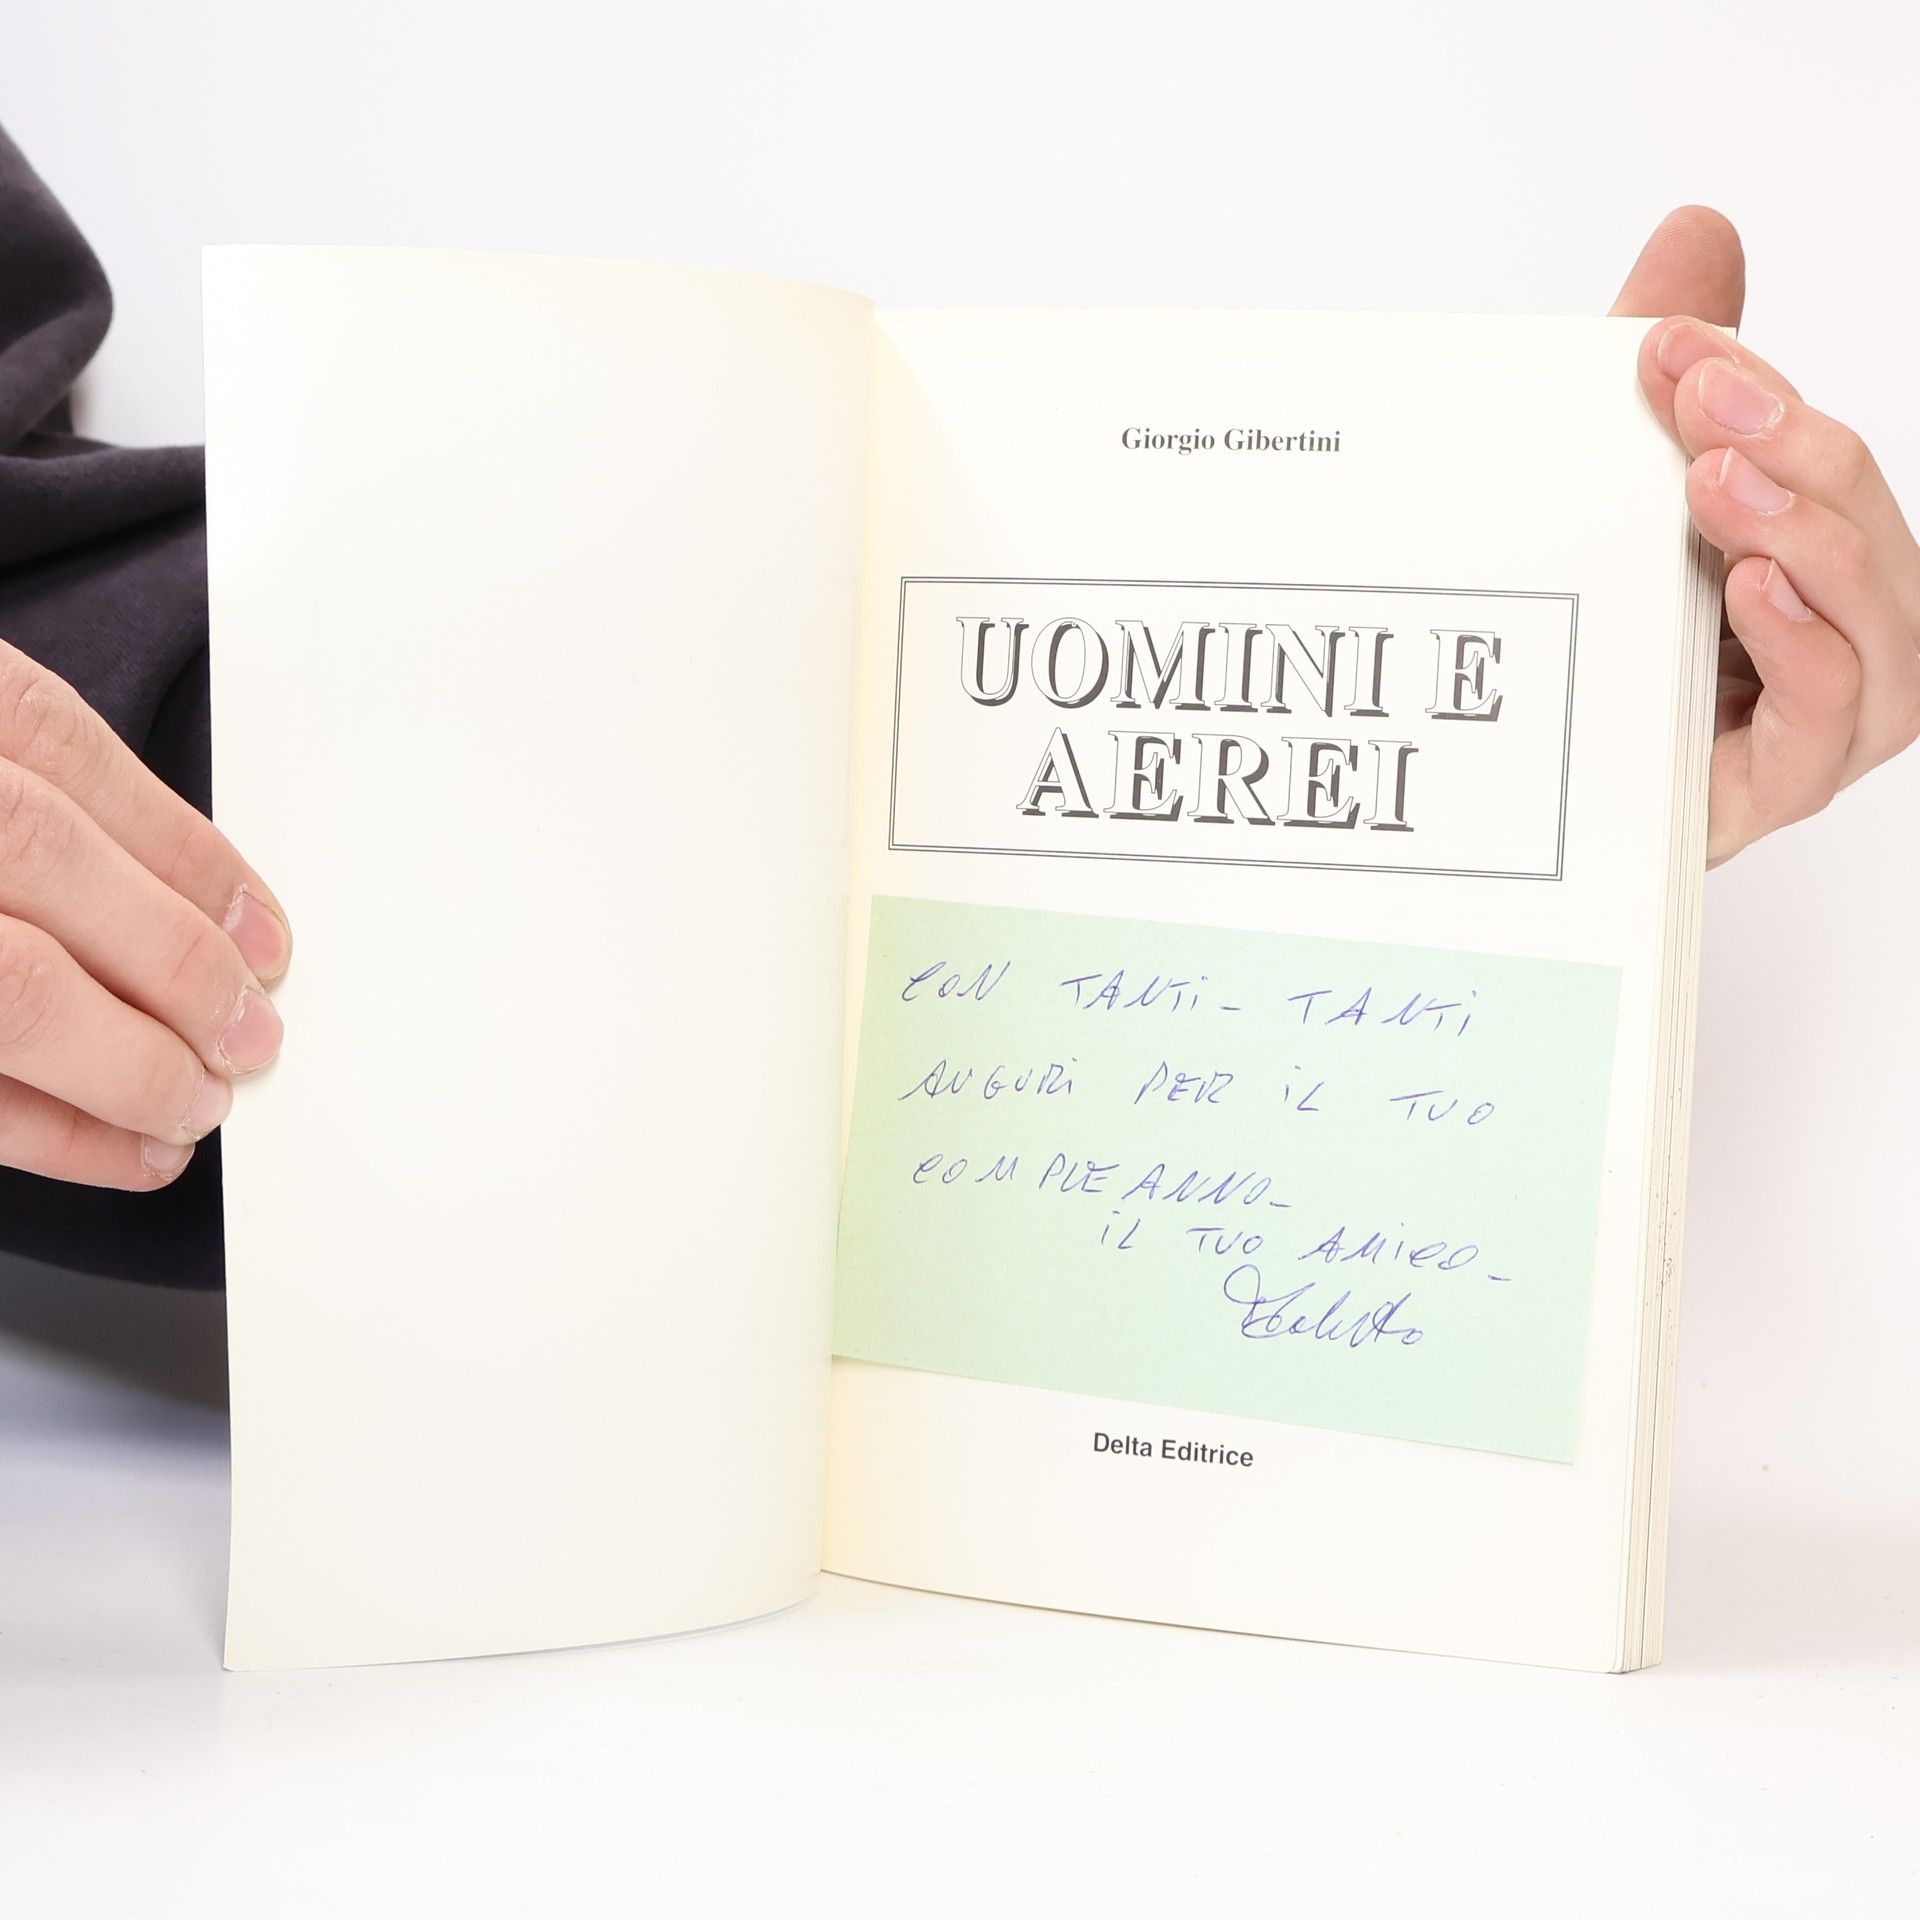 Giorgio Gibertini
UOMINI E
AEREI
CON TANTi - TANTi
AUGURi PER iL TUO
COMPLEANNO -
iL TUO AMiCO -
Delta Editrice